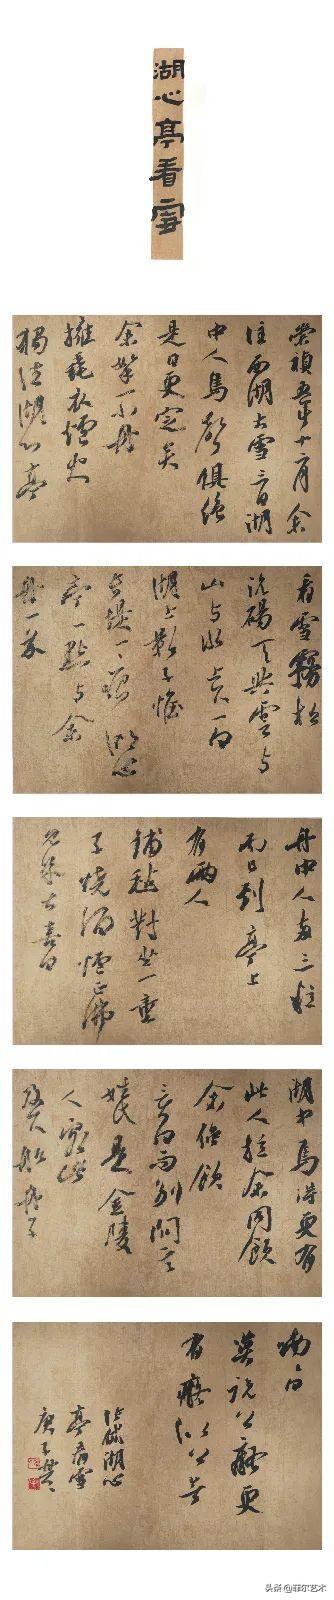 湖心亭看雪
崇禎五年十二月余
住西湖大雪三日湖
中人鳥聲俱絕
是日更定矣
余拏一小舟
擁毳衣爐火
獨往湖心亭
看雪霧凇
沆碭天與雲與
山與水上下一白
湖上影子惟
長堤一痕湖心
亭一點與余
舟一芥
舟中人兩三粒
而已到亭上
有兩人
鋪氈對坐一童
子燒酒爐正沸
見余大喜曰
湖中焉得更有
此人拉余同飲
余強飲
三白而別問其
姓氏是金陵
人客此
及下船舟子
喃喃曰
莫說相公癡更
有癡似相公者
張岱湖心
亭看雪
庚子
头条@菲尔艺术